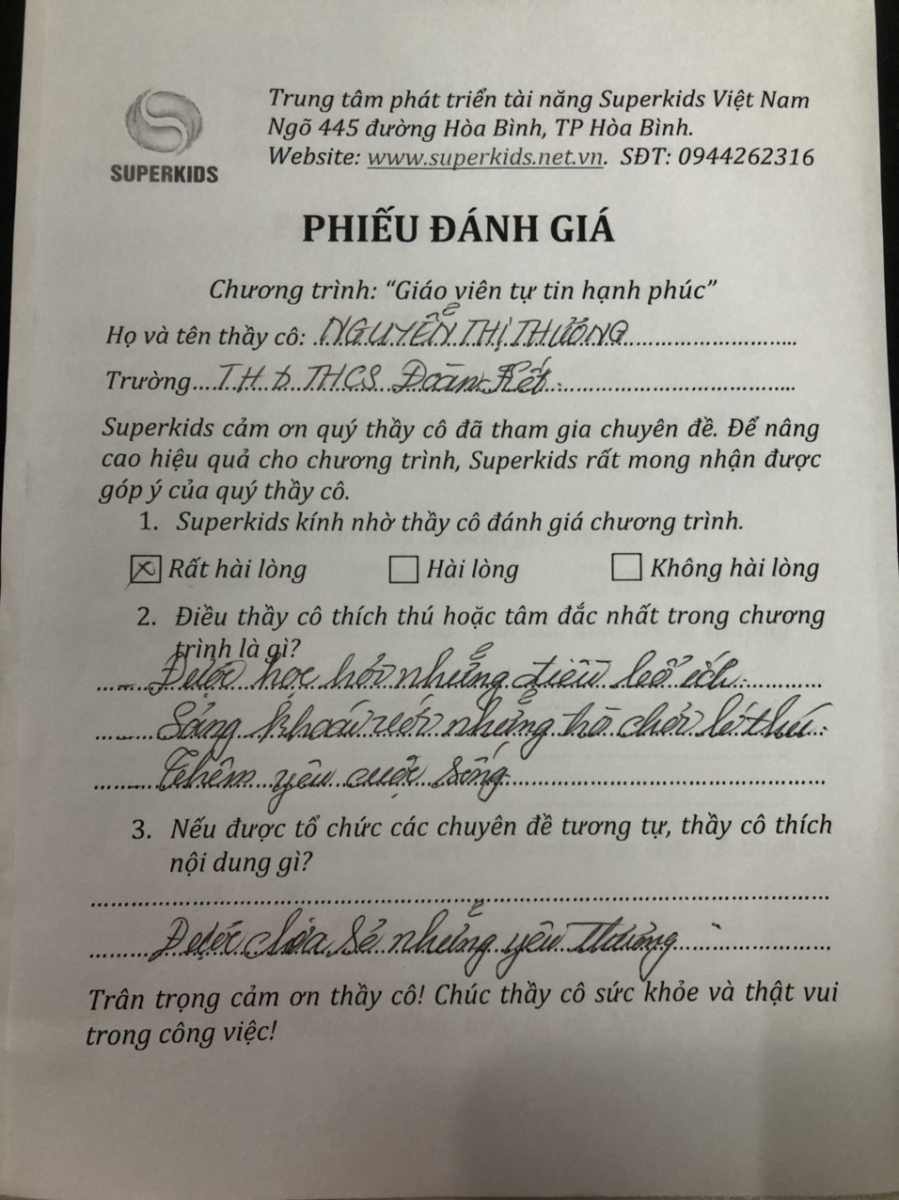 SUPERKIDS
Trung tâm phát triển tài năng Superkids Việt Nam
Ngõ 445 đường Hòa Bình, TP Hòa Bình.
Website: www.superkids.net.vn. SĐT: 0944262316
PHIẾU ĐÁNH GIÁ
Chương trình: “Giáo viên tự tin hạnh phúc”
Họ và tên thầy cô: NGUYỄN THỊ THƯƠNG
Trường TH & THCS Đoàn Kết
Superkids cảm ơn quý thầy cô đã tham gia chuyên đề. Để nâng
cao hiệu quả cho chương trình, Superkids rất mong nhận được
góp ý của quý thầy cô.
1. Superkids kính nhờ thầy cô đánh giá chương trình.
Rất hài lòng Hài lòng Không hài lòng
2. Điều thầy cô thích thú hoặc tâm đắc nhất trong chương
trình là gì?
- Được học hỏi những điều bổ ích.
Sảng khoái với những trò chơi lí thú.
Thêm yêu cuộc sống
3. Nếu được tổ chức các chuyên đề tương tự, thầy cô thích
nội dung gì?
Được chia sẻ những yêu thương
Trân trọng cảm ơn thầy cô! Chúc thầy cô sức khỏe và thật vui
trong công việc!